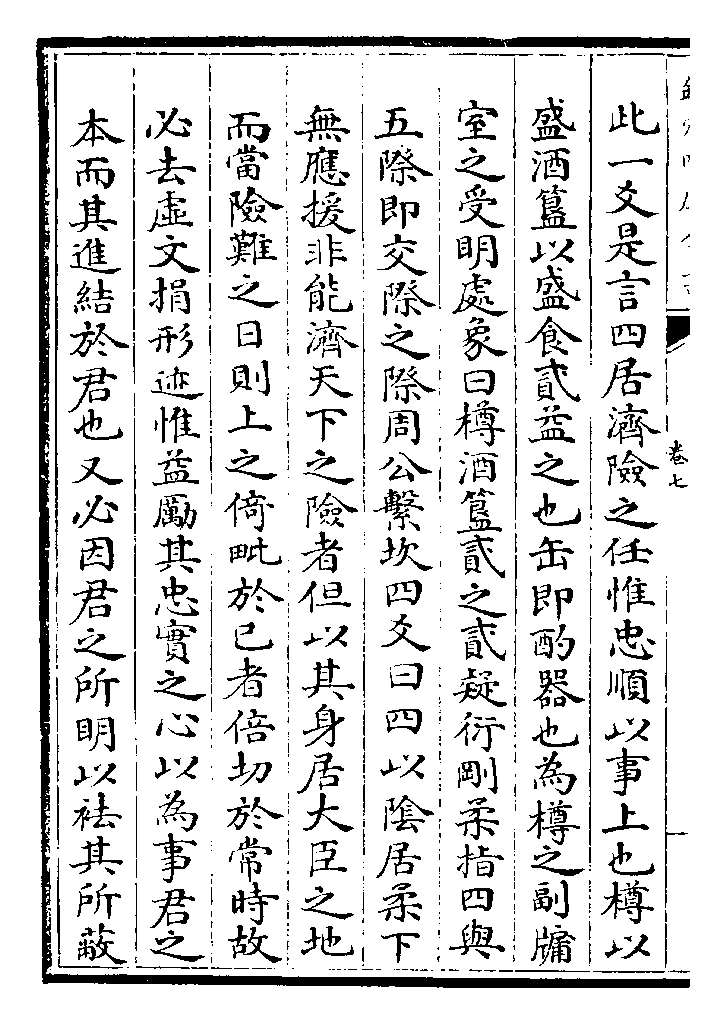 此一爻是言四居濟險之任惟忠順以事上也樽以
盛酒簋以盛食貳益之也缶即酌器也為樽之副牗
室之受明處象曰樽酒簋貳之貳疑衍剛柔指四與
五際即交際之際周公繫坎四爻曰四以陰居柔下
無應援非能濟天下之險者但以其身居大臣之地
而當險難之日則上之倚毗於已者倍切於常時故
必去虛文捐形迹惟益勵其忠實之心以為事君之
本而其進結於君也又必因君之所明以袪其所蔽
卷七